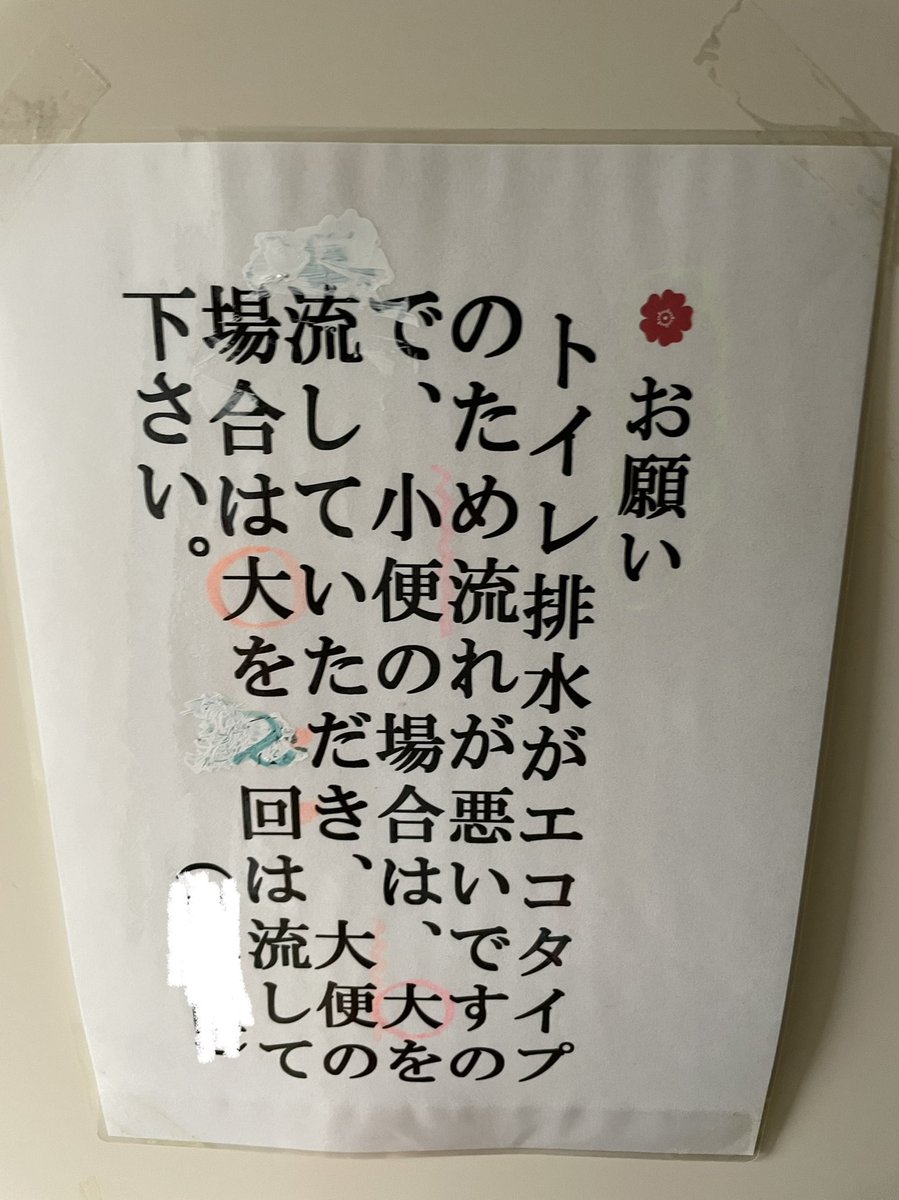 お願い
トイレ排水がエコタイプ
のため流れが悪いですの
で、小便の場合は、大を
流していただき、大便の
場合は大を2回は流して
下さい。